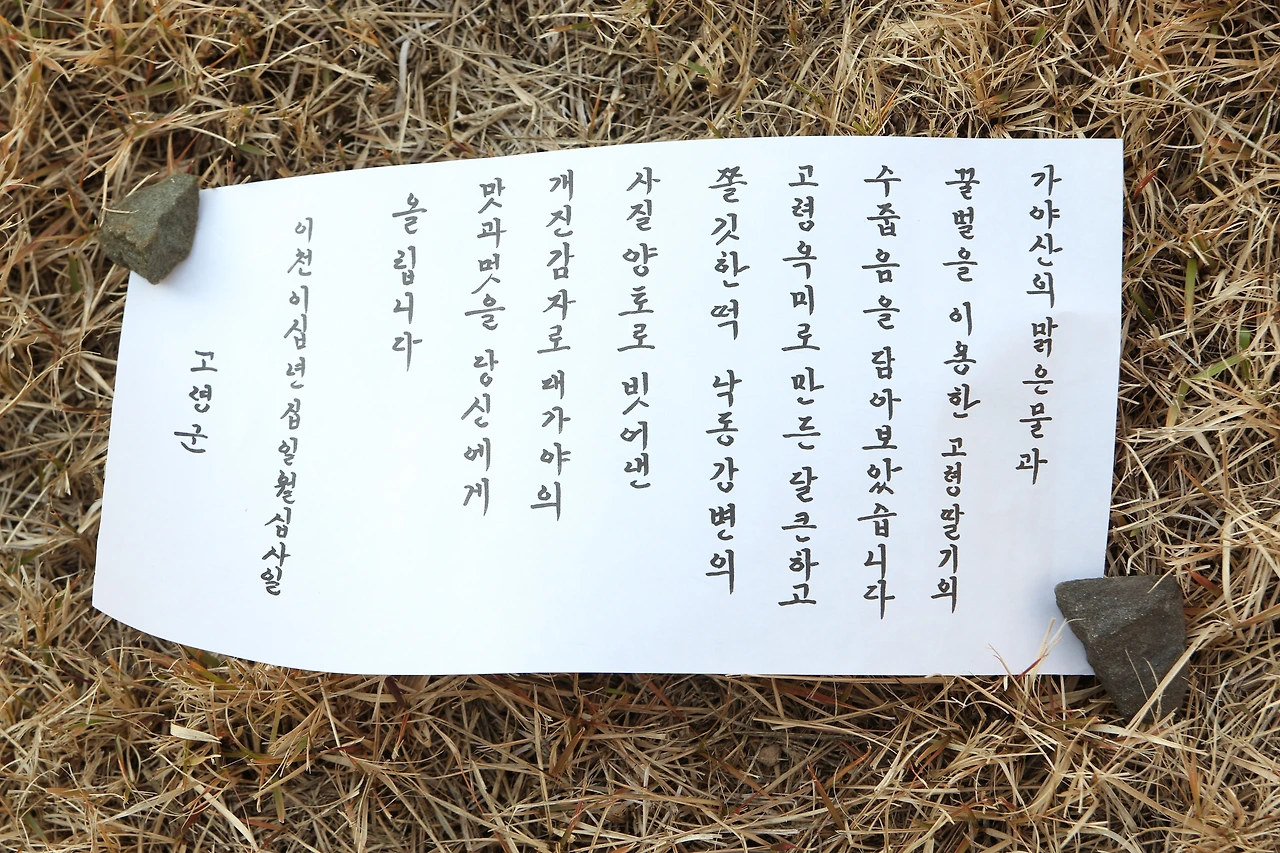 가야산의 맑은물과
꿀벌을 이용한 고령딸기의
수줍음을 담아보았습니다
고령옥미로 만든 달큰하고
쫄깃한 떡 낙동강변의
사질양토로 빗어낸
개진감자로 대가야의
맛과멋을 당신에게
올립니다
이천이십년십일월십사일
고령군